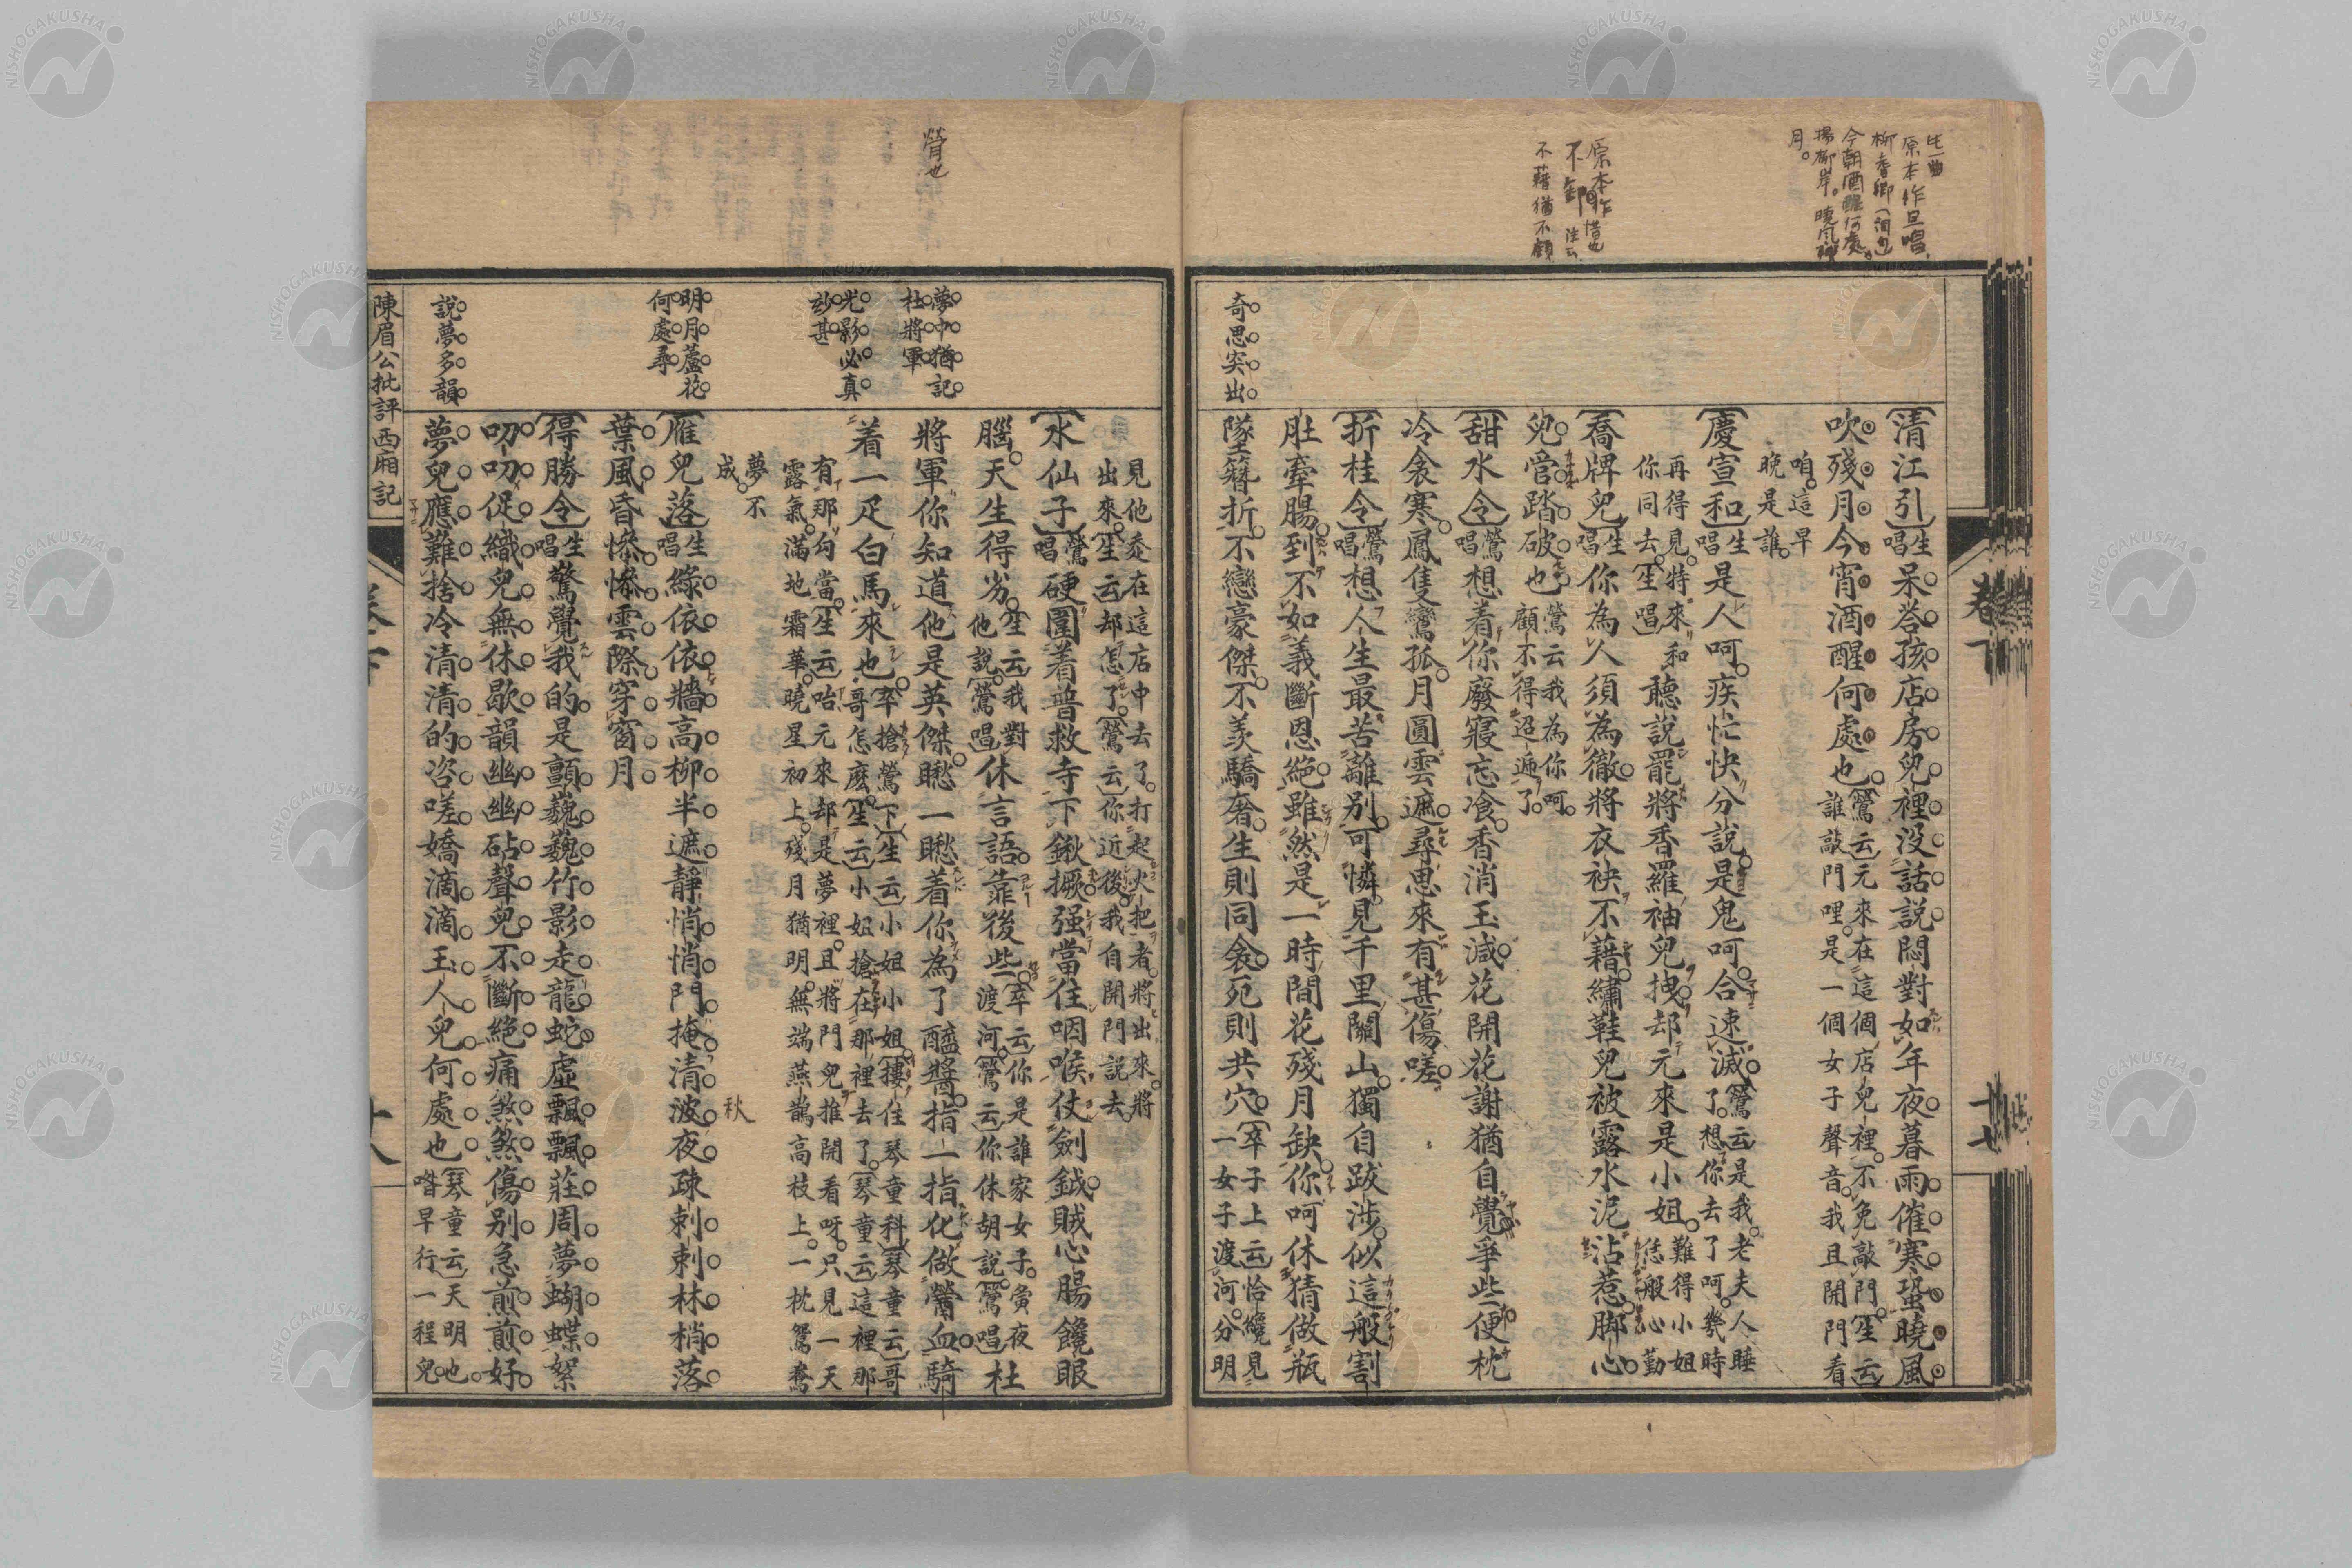 生一曲
原本作旦唱、
柳耆卿(酒句
今朝酒醒何處、
楊柳岸。曉風殘
月。
原本作
不卸惜也
注云
不藉猶不顧
卷下
十七
〔清江引〕生唱呆荅孩店房兒裡没話説悶對如年夜暮雨催寒蛩曉風
吹殘月今宵酒醒何處也〔鶯云〕元來在這個店兒裡不免敲門〔生云〕
誰敲門哩是一個女子聲音我且開門看
咱這早
晚是誰
〔慶宣和〕生唱是人呵疾忙快分説是鬼呵合速滅〔鶯云〕是我老夫人睡
了想你去了呵幾時
再得見特來和
你同去〔生唱〕聽説罷將香羅袖兒拽却元來是小姐難得小姐
恁般心勤
〔喬牌兒〕生唱你為人須為徹將衣袂不藉繡鞋兒被露水泥沾惹脚心
兒管踏破也鶯云我為你呵
顧不得迢逓了
〔甜水令〕鶯唱想着你廢寢忘飡香消玉減花開花謝猶自覺爭些便枕
冷衾寒鳳隻鸞孤月圓雲遮尋思來有甚傷嗟
〔折桂令〕鶯唱想人生最苦離别可憐見千里關山獨自跋涉似這般割
肚牽腸到不如義斷恩絶雖然是一時間花殘月缺你呵休猜做瓶
墜簪折不戀豪傑不羡驕奢生則同衾死則共穴〔卒子上云〕恰纔見
一女子渡河分明
奇思突出
膋也
見他走在這店中去了打起火把者將出來將
出來〔生云〕却怎了〔鶯云〕你近後我自開門説去
〔水仙子〕鶯唱硬圍着普救寺下鍬撅强當住咽喉仗劍鉞賊心腸饞眼
腦天生得劣〔生云〕我對
他説〔鶯唱〕休言語靠後些〔卒云〕你是誰家女子夤夜
渡河〔鶯云〕你休胡説〔鶯唱〕杜
將軍你知道他是英傑瞅一瞅着你為了醯醬指一指化做膋血騎
着一疋白馬來也〔卒搶鶯下〕〔生云〕小姐小姐〔摟住琴童科〕〔琴童云〕哥
哥怎麼〔生云〕小姐搶在那裡去了〔琴童云〕這裡那
有那勾當〔生云〕咍元來却是夢裡且將門兒推開看呀只見一天
露氣滿地霜華曉星初上殘月猶明無端燕鵲高枝上一枕鴛鴦
夢不
成
〔雁兒落〕生唱綠依依牆高柳半遮靜悄悄門掩清波夜疎剌剌林梢落
秋
葉風昏慘慘雲際穿窗月
〔得勝令〕生唱驚覺我的是顫巍巍竹影走龍蛇虛飄飄莊周夢蝴蝶絮
叨叨促織兒無休歇韻幽幽砧聲兒不斷絶痛煞煞傷别急煎煎好
夢兒應難捨冷清清的咨嗟嬌滴滴玉人兒何處也〔琴童云〕天明也
喒早行一程兒
夢中猶記
杜將軍
光影必真
玅甚
明月蘆花
何處尋
説夢多韻
陳眉公批評西廂記